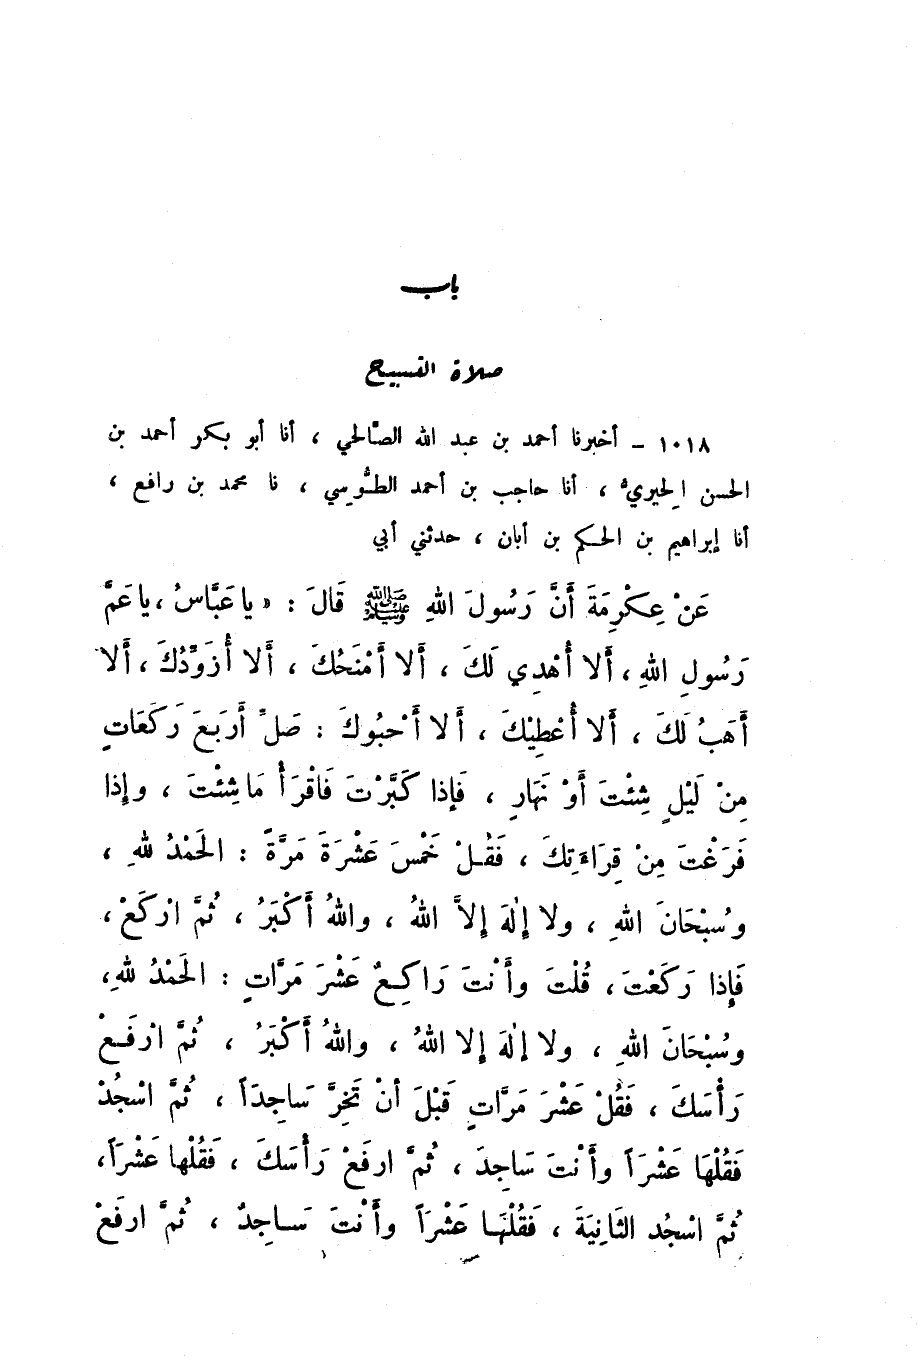 باب
صلاة التسبيح
١٠١٨ – أخبرنا أحمد بن عبد الله الصَّالحي ، أنا أبو بكر أحمد بن
الحسن الحِيريُّ ، أنا حاجب بن أحمد الطُّوسِي ، نا محمد بن رافع ،
أنا إبراهيم بن الحكم بن أبان ، حدثني أبي
عَنْ عِكْرِمَةَ أَنَّ رَسُولَ اللهِ ﷺ قَالَ : « يا عَبَّاسُ ، يا عَمَّ
رَسُولِ اللهِ ، أَلا أُهْدِي لَكَ ، أَلا أَمْنَحُكَ ، أَلا أُزَوِّدُكَ ، أَلا
أَهَبُ لَكَ ، أَلا أُعْطِيْكَ ، أَلا أَحْبُوكَ : صَلِّ أَرْبَعَ رَكَعَاتٍ
مِنْ لَيْلٍ شِئْتَ أَوْ نَهَارٍ ، فَإِذا كَبَّرْتَ فَاقْرَأْ مَا شِئْتَ ، وإِذا
فَرَغْتَ مِنْ قِرَاءَتِكَ ، فَقُلْ خَمْسَ عَشْرَةَ مَرَّةً : الحَمْدُ للهِ ،
وسُبْحَانَ اللهِ ، ولا إِلهَ إِلاَّ اللهُ ، واللهُ أَكْبَرُ ، ثُمَّ ارْكَعْ ،
فَإِذا رَكَعْتَ ، قُلْتَ وأَنْتَ رَاكِعٌ عَشْرَ مَرَّاتٍ : الحَمْدُ للهِ ،
وسُبْحَانَ اللهِ ، ولا إِلهَ إِلا اللهُ ، واللهُ أَكْبَرُ ، ثُمَّ ارْفَعْ
رَأْسَكَ ، فَقُلْ عَشْرَ مَرَّاتٍ قَبْلَ أَنْ تَخِرَّ سَاجِدَاً ، ثُمَّ اسْجُدْ
فَقُلْهَا عَشْرَاً وأَنْتَ سَاجِدَ ، ثُمَّ ارفَعْ رَأْسَكَ ، فَقُلْها عَشْرَاً ،
ثُمَّ اسْجُد الثَانِيَةَ ، فَقُلْهَا عَشْرَاً وأَنْتَ سَاجِدٌ ، ثُمَّ ارفَعْ